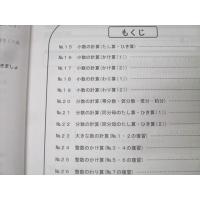 もくじ
№15 小数の計算(たし算・ひき算)
№16 小数の計算(かけ算1)
№17 小数の計算(かけ算2)
№18 小数の計算(わり算1)
№19 小数の計算(わり算2)
№20 分数の計算(帯分数・仮分数・倍分・約分)
№21 分数の計算(同分母のたし算・ひき算1)
№22 分数の計算(同分母のたし算・ひき算2)
№23 大きな数の計算(№1・2の復習)
№24 整数のかけ算(№3・4の復習)
№25 整数のかけ算(№5・6の復習)
№26 整数のわり算(№7の復習)
きましょ